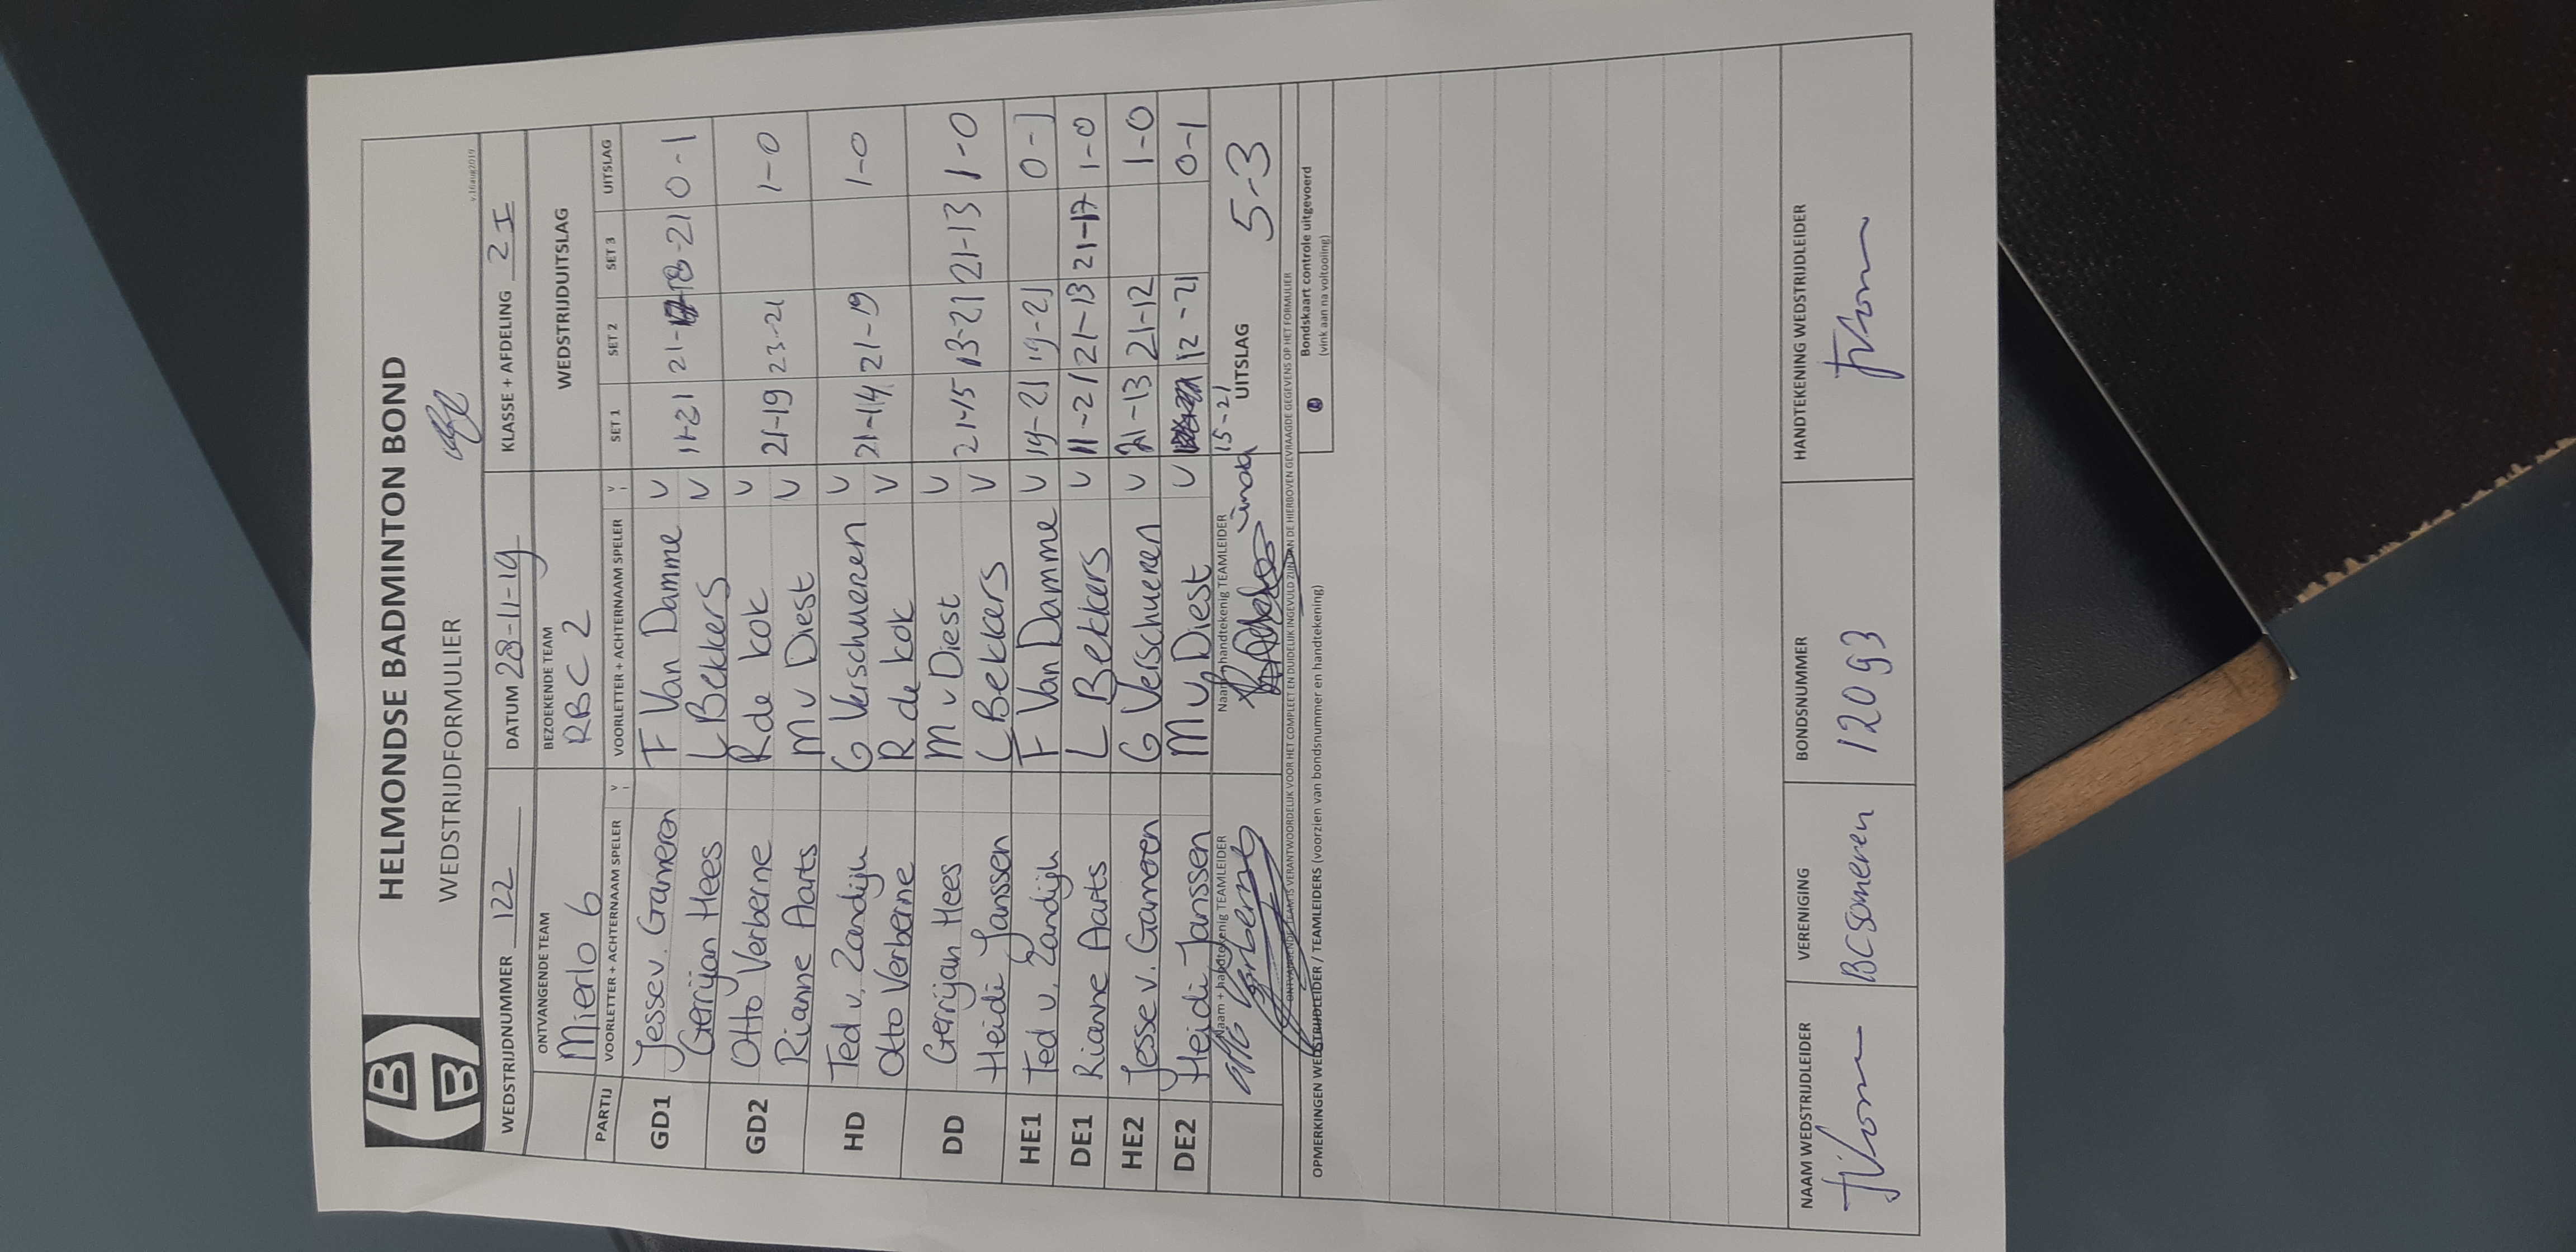 HELMONDSE BADMINTON BOND
WEDSTRIJDFORMULIER
v.16aug2019
WEDSTRIJDNUMMER 122 DATUM 28-11-19 KLASSE + AFDELING 2 I
ONTVANGENDE TEAM BEZOEKENDE TEAM WEDSTRIJDUITSLAG
Mierlo 6 RBC 2
PARTIJ VOORLETTER + ACHTERNAAM SPELER V VOORLETTER + ACHTERNAAM SPELER V SET 1 SET 2 SET 3 UITSLAG
GD1 Jesse v. Gameren F Van Damme V
Gerrijan Hees L Bekkers V 11-21 21- 18-21 0-1
GD2 Otto Verberne R de kok V
Rianne Aarts M v Diest V 21-19 23-21 1-0
HD Ted v. Zandijk G Verschueren V
Otto Verberne R de kok V 21-14 21-19 1-0
DD Gerrijan Hees M v Diest V
Heidi Janssen L Bekkers V 21-15 13-21 21-13 1-0
HE1 Ted v. Zandijk F Van Damme V 19-21 19-21 0-1
DE1 Rianne Aarts L Bekkers V 11-21 21-13 21-17 1-0
HE2 Jesse v. Gameren G Verschueren V 21-13 21-12 1-0
DE2 Heidi Janssen M v Diest V 12-21 0-1
15-21
Naam + handtekenig TEAMLEIDER Naam + handtekenig TEAMLEIDER UITSLAG 5-3
Otto Verberne
ONTVANGENDE TEAM IS VERANTWOORDELIJK VOOR HET COMPLEET EN DUIDELIJK INGEVULD ZIJN VAN DE HIERBOVEN GEVRAAGDE GEGEVENS OP HET FORMULIER
Bondskaart controle uitgevoerd
(vink aan na voltooiing)
OPMERKINGEN WEDSTRIJDLEIDER / TEAMLEIDERS (voorzien van bondsnummer en handtekening)
NAAM WEDSTRIJDLEIDER VERENIGING BONDSNUMMER HANDTEKENING WEDSTRIJDLEIDER
BCSomeren 12093